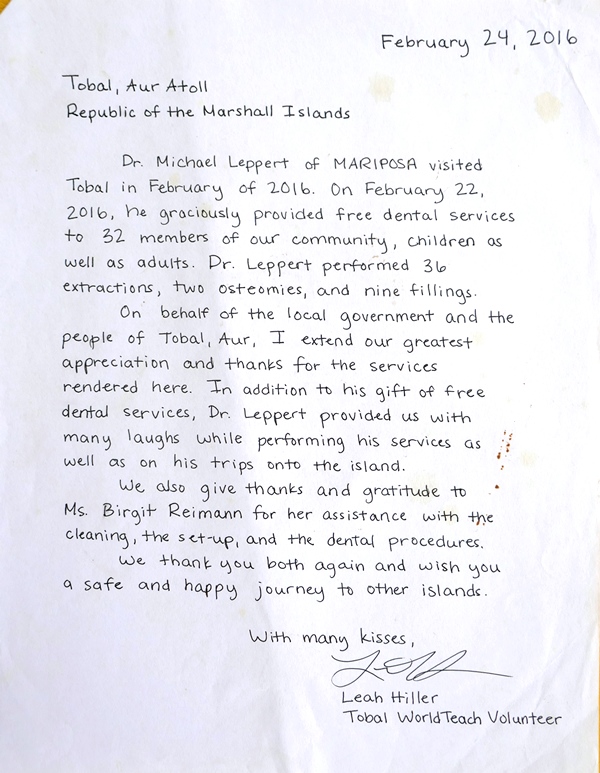 February 24, 2016
Tobal, Aur Atoll
Republic of the Marshall Islands
Dr. Michael Leppert of MARIPOSA visited
Tobal in February of 2016. On February 22,
2016, he graciously provided free dental services
to 32 members of our community, children as
well as adults. Dr. Leppert performed 36
extractions, two osteomies, and nine fillings.
On behalf of the local government and the
people of Tobal, Aur, I extend our greatest
appreciation and thanks for the services
rendered here. In addition to his gift of free
dental services, Dr. Leppert provided us with
many laughs while performing his services as
well as on his trips onto the island.
We also give thanks and gratitude to
Ms. Birgit Reimann for her assistance with the
cleaning, the set-up, and the dental procedures.
We thank you both again and wish you
a safe and happy journey to other islands.
With many kisses,
Leah Hiller
Tobal WorldTeach Volunteer